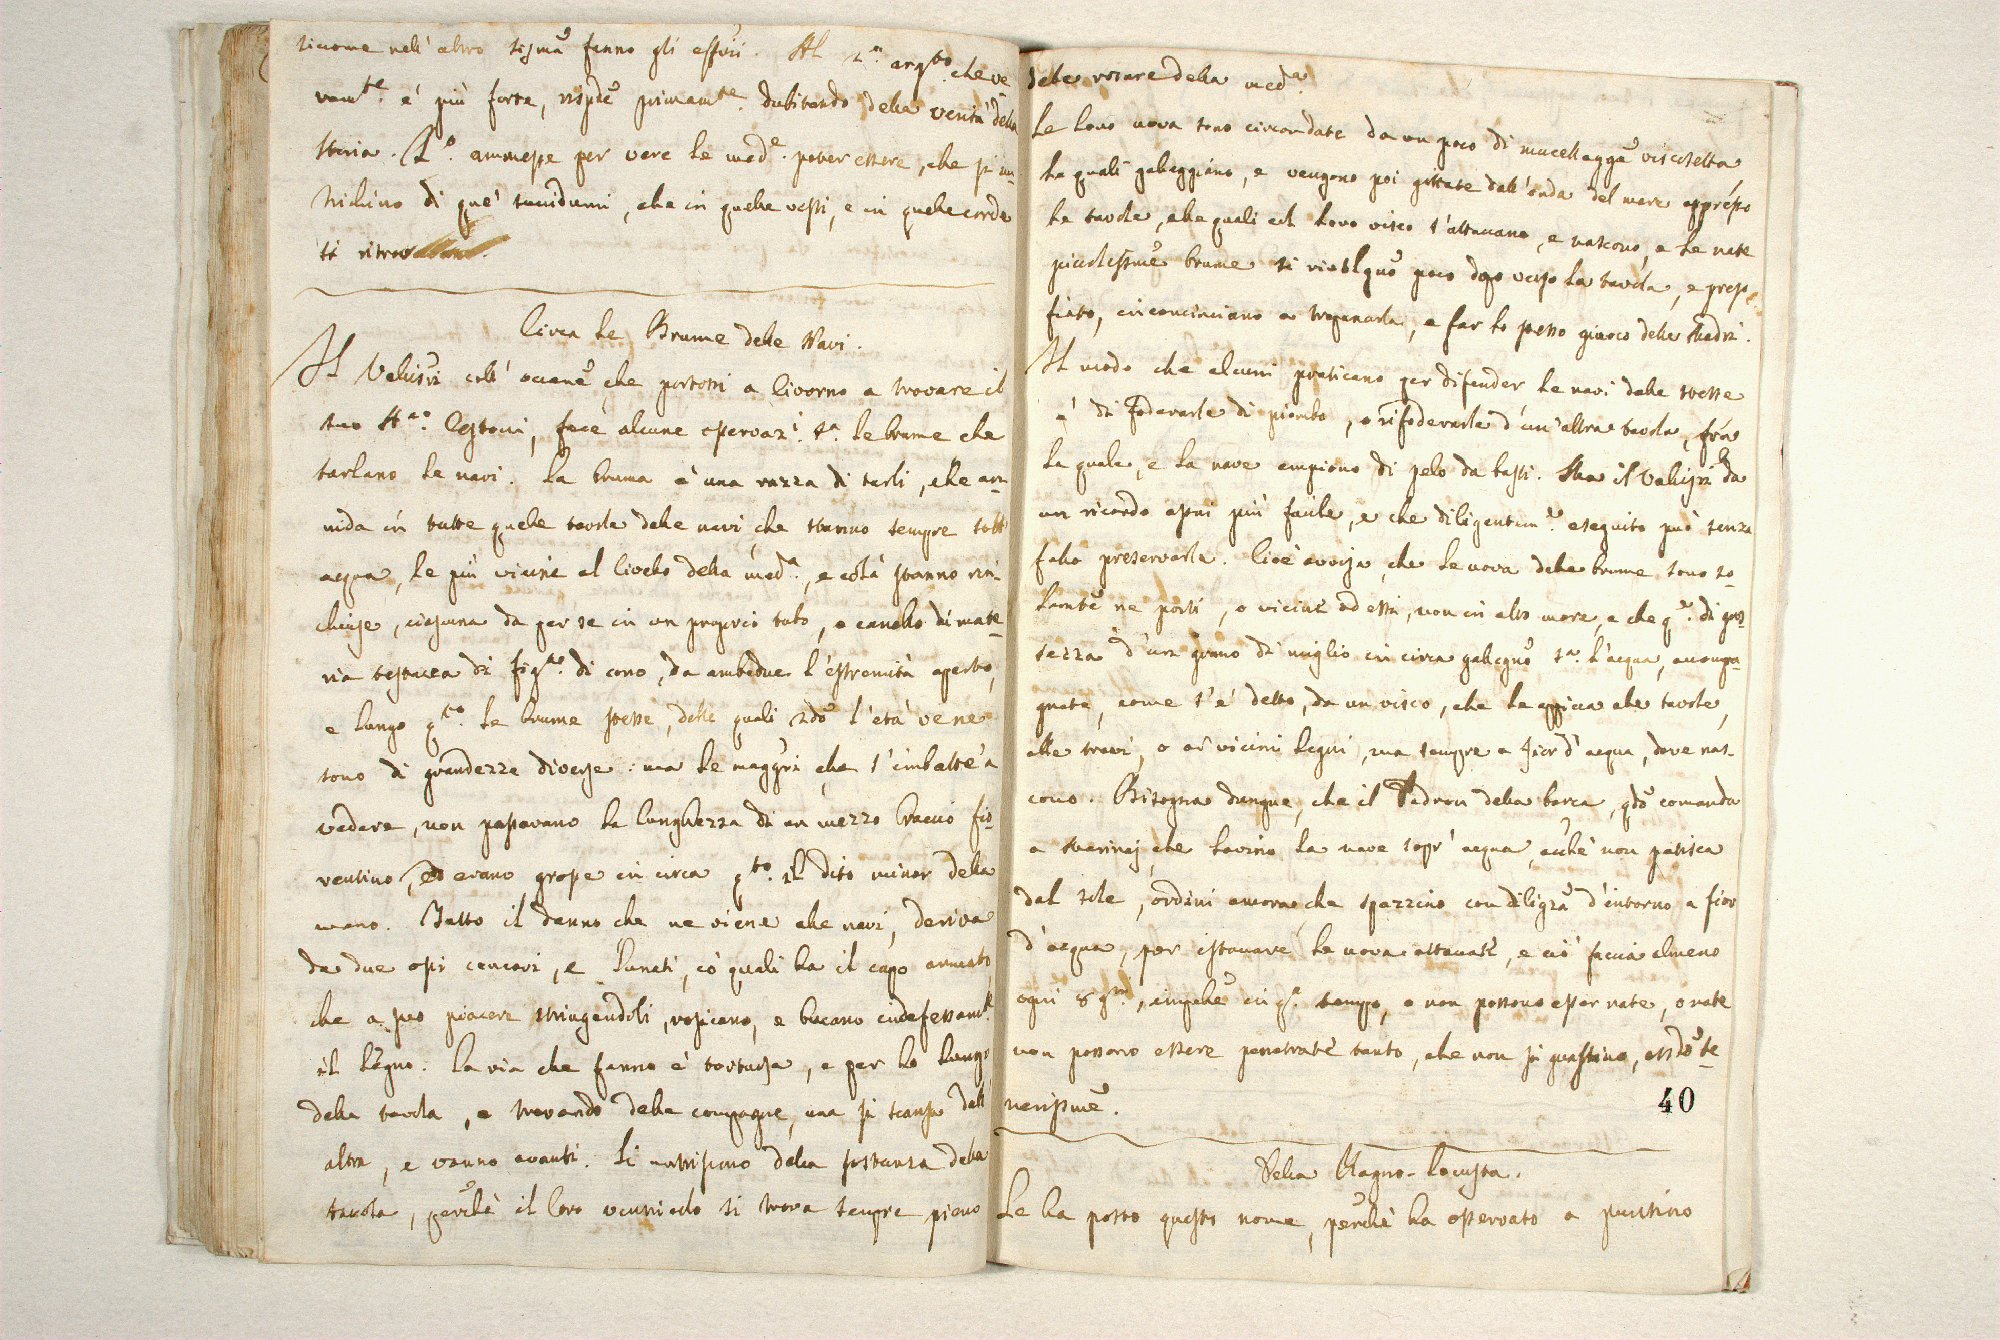 siccome nell' altro sigmã fanno gli essỡi. Al 2.º arg.to che ve-
ram.te è più forte, rispde primam.te dubitando della verità della
storia. 2.º ammesse per vere le med.e poter essere, che si an-
nichino di que' succidumi, che in quelle vesti, e in quelle corde
si ritrov
Circa le Brume delle Navi.
Il Valisñi coll' occasnẽ che portossi a Livorno a trovare il
suo Cestoni, fece alcune osservaz.i s.a le brume che
tarlano le navi. La bruma è una razza di tarli, che an-
nida in tutte quelle tavole delle navi che stanno sempre sott'
acqua, le più vicine al livello della med.a, e colà stanno rin-
chiuse, ciascuna da per se in un proprio tubo, o canello di mate-
ria testacea di fig.a di cono, da ambedue l' estremità aperto,
e lungo q.to le brume stesse, delle quali 2dõ l' età ve ne
sono di grandezze diverse: ma le maggri, che s' imbatte' a
vedere, non passavano la lunghezza di un mezzo braccio fio-
rentino, ed erano grosse in circa q.to il dito minor della
mano. Tutto il danno che ne viene alle navi, deriva
da due ossi concavi, e lunati, co' quali ha il capo armato
che a suo piacere stringendoli, rosicano, e bucano indefessam.te
il legno. La via che fanno è tortuosa, e per lo lungo
della tavola, e trovando delle compagne, una si scansa dall'
altra, e vanno avanti. Si nutriscono della sostanza della
tavola, perchẽ il loro ventricolo si trova sempre pieno
delle rosure della med.a
Le loro uova sono circondate da un poco di mucellaggẽ viscosetta,
le quali galleggiano, e vengono poi gittate dall' onda del mare appresso
le tavole, alle quali col loro visco s' attaccano, e nascono, e le nate
picciolissimẽ brume si rivolgnõ poco dopo verso la tavola, e preso
fiato, incominciano a trapanarla, e far lo stesso giuoco delle Madri.
Il modo che alcuni praticano per difender le navi dalle stesse
è di foderarle di piombo, o rifoderarle d' un' altra tavola, fra
la quale, e la nave empiono di pelo da basti. Ma il Valisñi dà
un ricordo assai più facile, e che diligentem.e eseguito può senza
fallo preservarla. Cioè avvisa, che le uova delle brume sono so-
lamtẽ ne porti, o vicinẽ ad essi, non in alto mare, e che q.e di gros-
sezza d' un grano di miglio in circa gallegnõ s.a l' acqua, accompa-
gnate, come s' è detto, da un visco, che le appicca alle tavole,
alle travi, o ai vicini legni, ma sempre a fior d' acqua, dove nas-
cono. Bisogna dunque, che il Padron della barca, qdõ comanda
a Marinaj che lavino la nave sopr' acqua, acchẽ non patisca
dal sole, ordini ancora che spazzino con diligzã d' intorno a fior
d' acqua, per istaccare le uova attaccatẽ, e ciò faccia almeno
ogni 8 g.ni, impchẽ in q.o tempo, o non possono esser nate, o nate
non possono essere penetratẽ tanto, che non si guastino, essdõ te-
nerissimẽ.
40
Della Magno-Locusta.
Le ha posto questo nome, perchẽ ha osservato a puntino